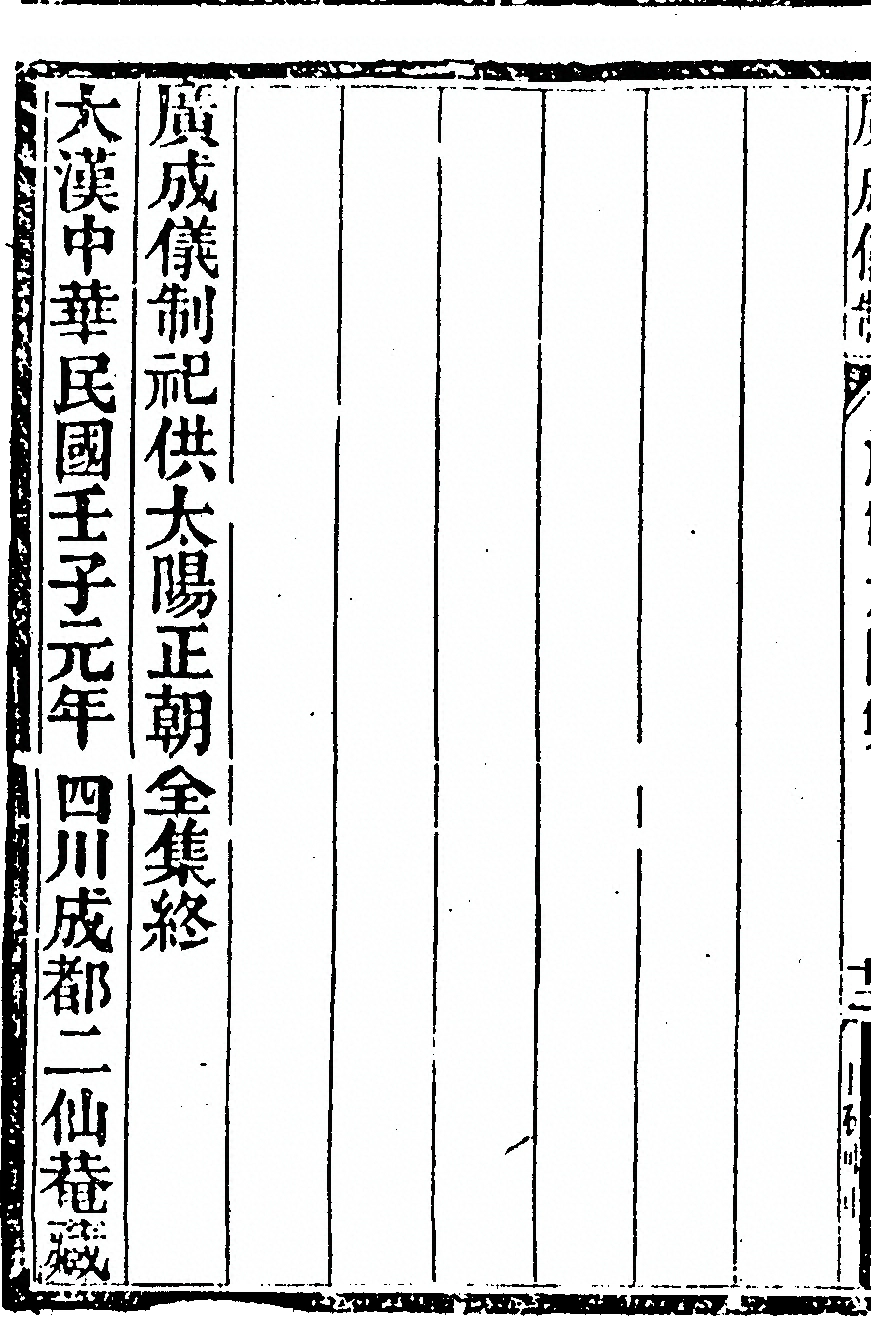 廣成儀制
十二
廣成儀制祀供太陽正朝全集終
大漢中華民國壬子元年 四川成都二仙菴藏